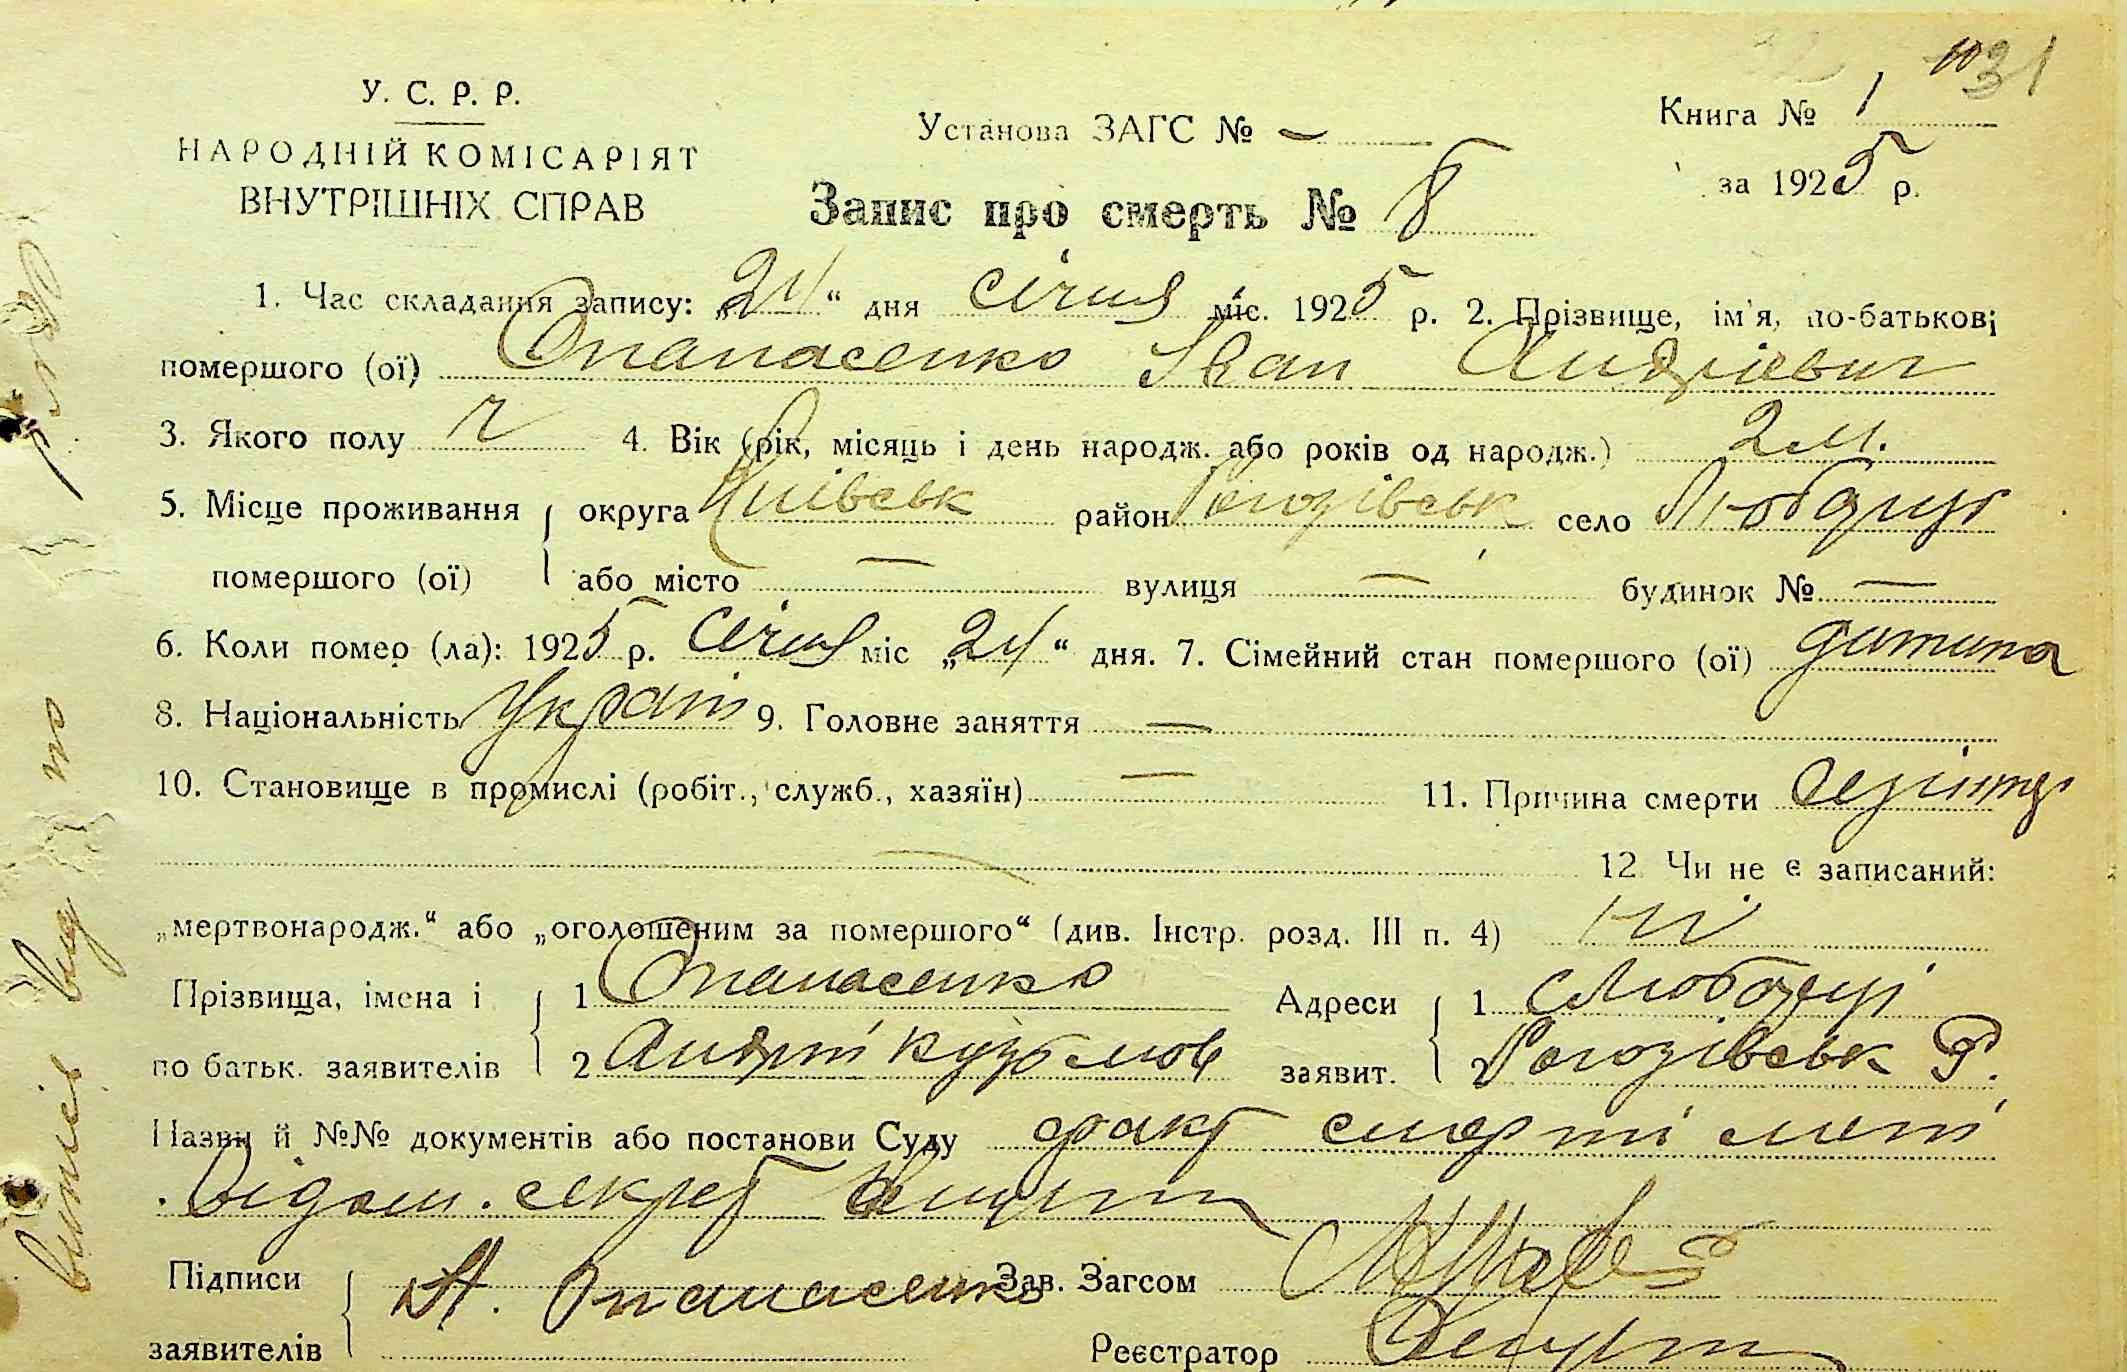 31
У. С. Р. Р.
НАРОДНІЙ КОМІСАРІЯТ
ВНУТРІШНІХ СПРАВ
Установа ЗАГС № —
Книга № 1
за 1925 р.
Запис про смерть № 8
1. Час складання запису: „24“ дня січня міс. 1925 р. 2. Прізвище, ім'я, по-батькові
помершого (ої) Опанасенко Іван Андрієвич
3. Якого полу ч 4. Вік (рік, місяць і день народж. або років од народж.) 2 м.
5. Місце проживання округа Київськ район Рогозівськ село Любарці
помершого (ої) або місто — вулиця — будинок № —
6. Коли помер (ла): 1925 р. січня міс „24“ дня. 7. Сімейний стан помершого (ої) дитина
8. Національність Україн 9. Головне заняття —
10. Становище в промислі (робіт., служб., хазяїн) — 11. Причина смерти
12 Чи не є записаний:
„мертвонародж.“ або „оголошеним за помершого“ (див. Інстр. розд. III п. 4) Ні
Прізвища, імена і 1 Опанасенко Адреси 1 с Любарці
по батьк. заявителів 2 Андрій Кузьмов заявит. 2 Рогозівськ Р.
Назви й №№ документів або постанови Суду факт смерті мені
відом. секрет
Підписи А. Опанасенко Зав. Загсом
заявителів Реєстратор